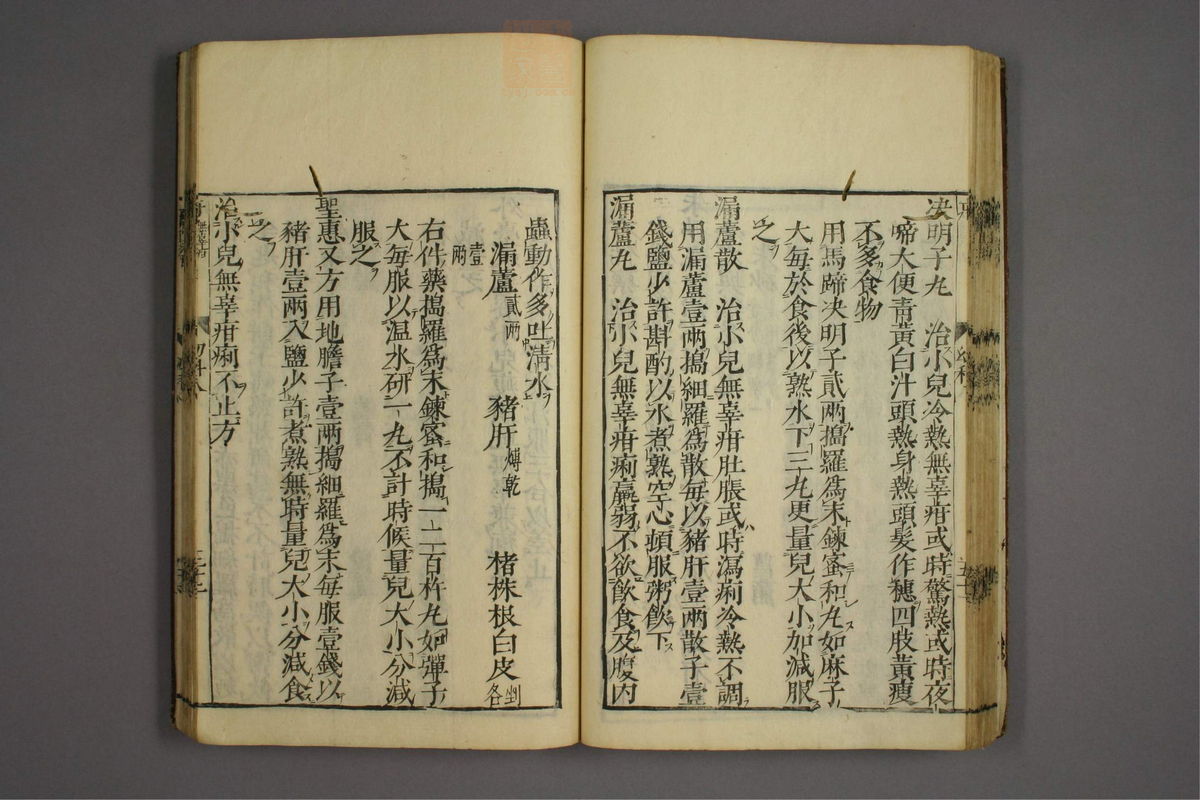 决明子丸 治小兒冷熱無辜疳或時驚熱或時夜
啼大便青黃白汁頭熱身熱頭髮作穗四肢黃瘦
不多食物
用馬蹄决明子貳兩搗羅為末鍊蜜和丸如麻子
大每於食後以熟水下三丸更量兒大小加減服
之
漏蘆散 治小兒無辜疳肚脹或時瀉痢冷熱不調
用漏蘆壹兩搗細羅為散每以豬肝壹兩散子壹
錢鹽少許斟酌以水煮熟空心頓服粥飲下
漏蘆丸 治小兒無辜疳痢羸弱不欲飲食及腹内
蟲動作多吐清水
漏蘆貳兩 豬肝煿乾 楮株根白皮剉各
壹兩
右件藥搗羅為末鍊蜜和搗一二百杵丸如彈子
大每服以温水研一丸不計時候量兒大小分減
服之
聖惠又方用地膽子壹兩搗細羅為末每服壹錢以
豬肝壹兩入鹽少許煮熟無時量兒大小分減食
之
治小兒無辜疳痢不止方